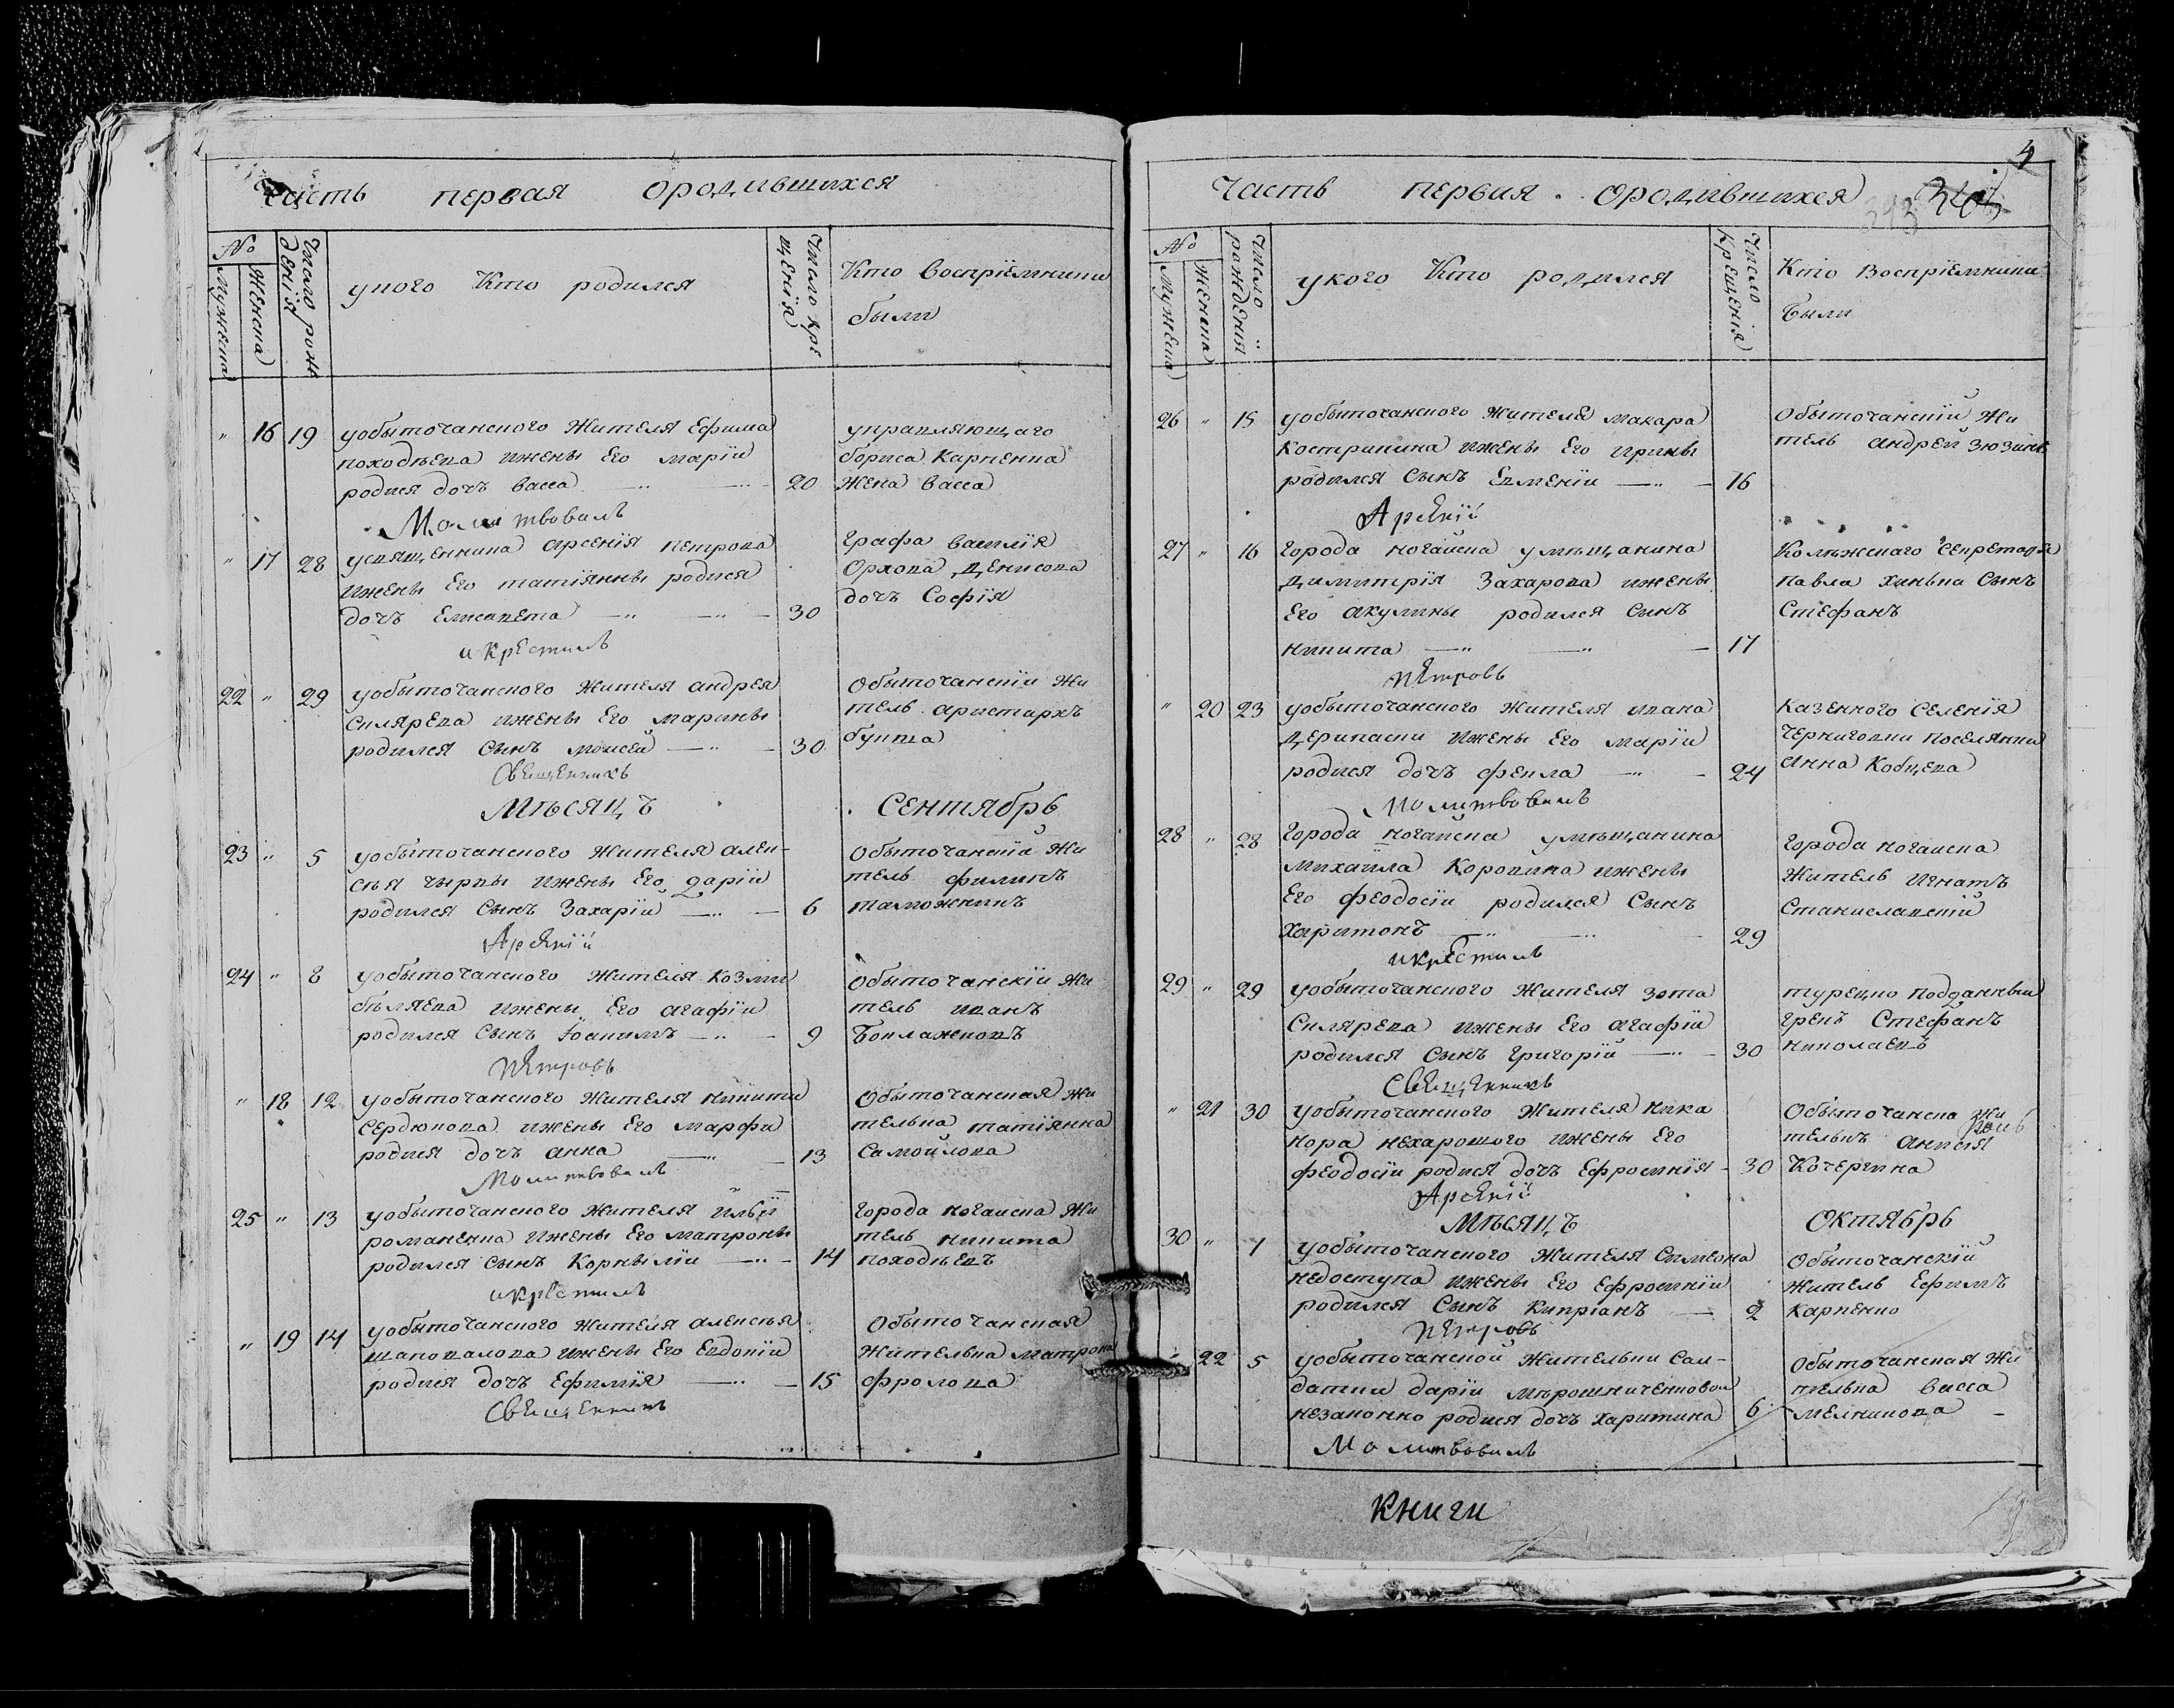 Часть первая ородившихся
№
Мужеска
Женска
Число рож
денія
укого Кто родился
Число кре
щенія
Кто воспріемники
были
" 16 19 уобыточанского жителя Ефима
походѣева ижены Его маріи
родися дочъ васса 20
управляющаго
бориса Карпенка
жена васса
Молитвовалъ
" 17 28 усвященника арсенія петрова
ижены Его татіянны родися
дочъ Елисавета 30
Графа василія
Орлова Денисова
дочъ Софія
и крестилъ
22 " 29 уобыточанского жителя андрея
Склярева ижены Его марины
родился сынъ моисей 30
Обыточанскій жи
тель аристархъ
букша
Священникъ
Мѣсяцъ Сентябрь
23 " 5 уобыточанского жителя алек-
сѣя чырвы ижены Его дарїи
родился сынъ Захарій 6
Обыточанскій жи
тель филипъ
таможникъ
Арсеній
24 " 8 уобыточанского жителя козмы
бѣляева ижены Его агафіи
родился сынъ Іоакимъ 9
Обыточанскій жи
тель иванъ
Боклажковъ
Петровъ
" 18 12 уобыточанского жителя никиты
Сердюкова ижены Его марфы
родися дочъ анна 13
Обыточанская жи
телька татіянна
Самойлова
Молитвовалъ
25 " 13 уобыточанского жителя Ильи
романенка ижены Его матроны
родился сынъ Корнылій 14
Города ногайска жи
тель никита
походѣевъ
и крестилъ
" 19 14 уобыточанского жителя алексѣя
шаповалова ижены Его Евдокіи
родися дочъ Ефимія 15
Обыточанская
жителька матрона
фролова
Священникъ
4
Часть первая ородившихся
343
№
Мужеска
Женска
Число
рожденія
укого Кто родился
Число
крещенія
Кто воспріемники
были
26 " 15 уобыточанского жителя макара
Кострикина ижены Его ирины
родился сынъ Евменій 16
Обыточанскій жи
тель андрей зюзинъ
Арсеній
27 " 16 Города ногайска умѣщанина
Димитрія Захарова ижены
Его акулины родился сынъ
никита 17
Колѣжскаго секретаря
павла хинька сынъ
Стефанъ
Петровъ
" 20 23 уобыточанского жителя ивана
Дерипаски ижены Его маріи
родися дочъ фекла 24
Казенного Селенія
Черниговки поселянка
анна Кобцева
Молитвовалъ
28 " 28 Города ногайска умѣщанина
Михаила Коровина ижены
Его феодосіи родился сынъ
Харитонъ 29
Города ногайска
житель игнатъ
Станиславскій
и крестилъ
29 " 29 уобыточанского жителя зота
Склярева ижены Его агафіи
родился сынъ григорій 30
турецко подданный
грекъ Стефанъ
николаевъ
Священникъ
" 21 30 уобыточанского жителя Ника
нора нехарошого ижены Его
феодосіи родися дочъ Ефросинія 30
Обыточанска жи
тельк анисія
Кочергина
Арсеній
Мѣсяцъ Октябрь
30 " 1 уобыточанского жителя Симеона
недоступа ижены Его Ефросиніи
родился сынъ Кипріанъ 2
Обыточанскій
житель Ефимъ
Карпенко
Петровъ
" 22 5 уобыточанской жительки сал-
датки даріи мѣрошниченковой
незаконно родися дочъ харитина 6
Обыточанская жи
телька васса
мелникова
Молитвовалъ
Книги